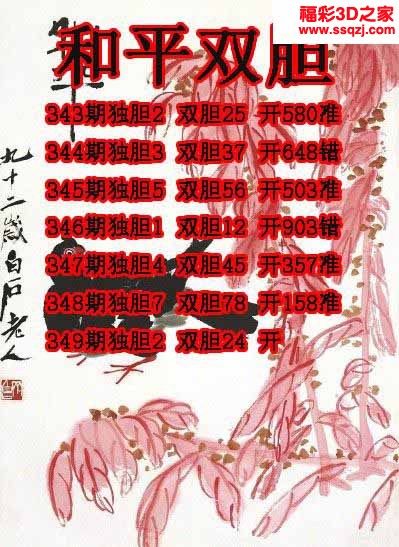 福彩3D之家
www.ssqzj.com
和平双胆
343期独胆2 双胆25 开580准
344期独胆3 双胆37 开648错
345期独胆5 双胆56 开503准
346期独胆1 双胆12 开903错
347期独胆4 双胆45 开357准
348期独胆7 双胆78 开158准
349期独胆2 双胆24 开
九十二岁白石老人